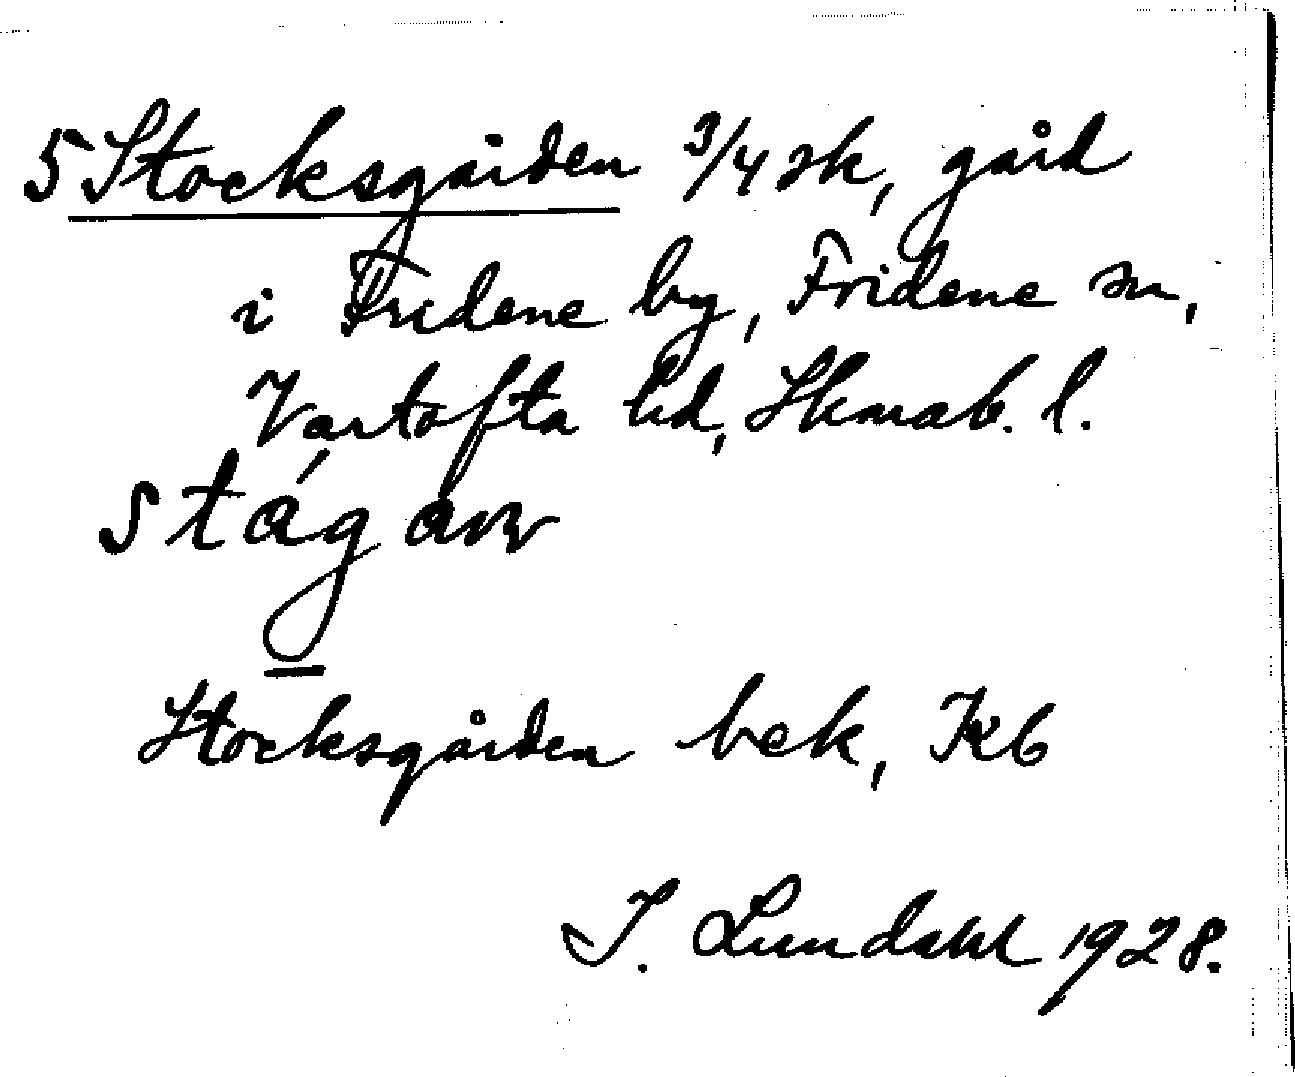 5 Stocksgården 3/4 sk, gård
i Fridene by, Fridene sn,
Vartofta hd, Skarab. l.
stág an
Stocksgården bek, Kb
I. Lundahl 1928.